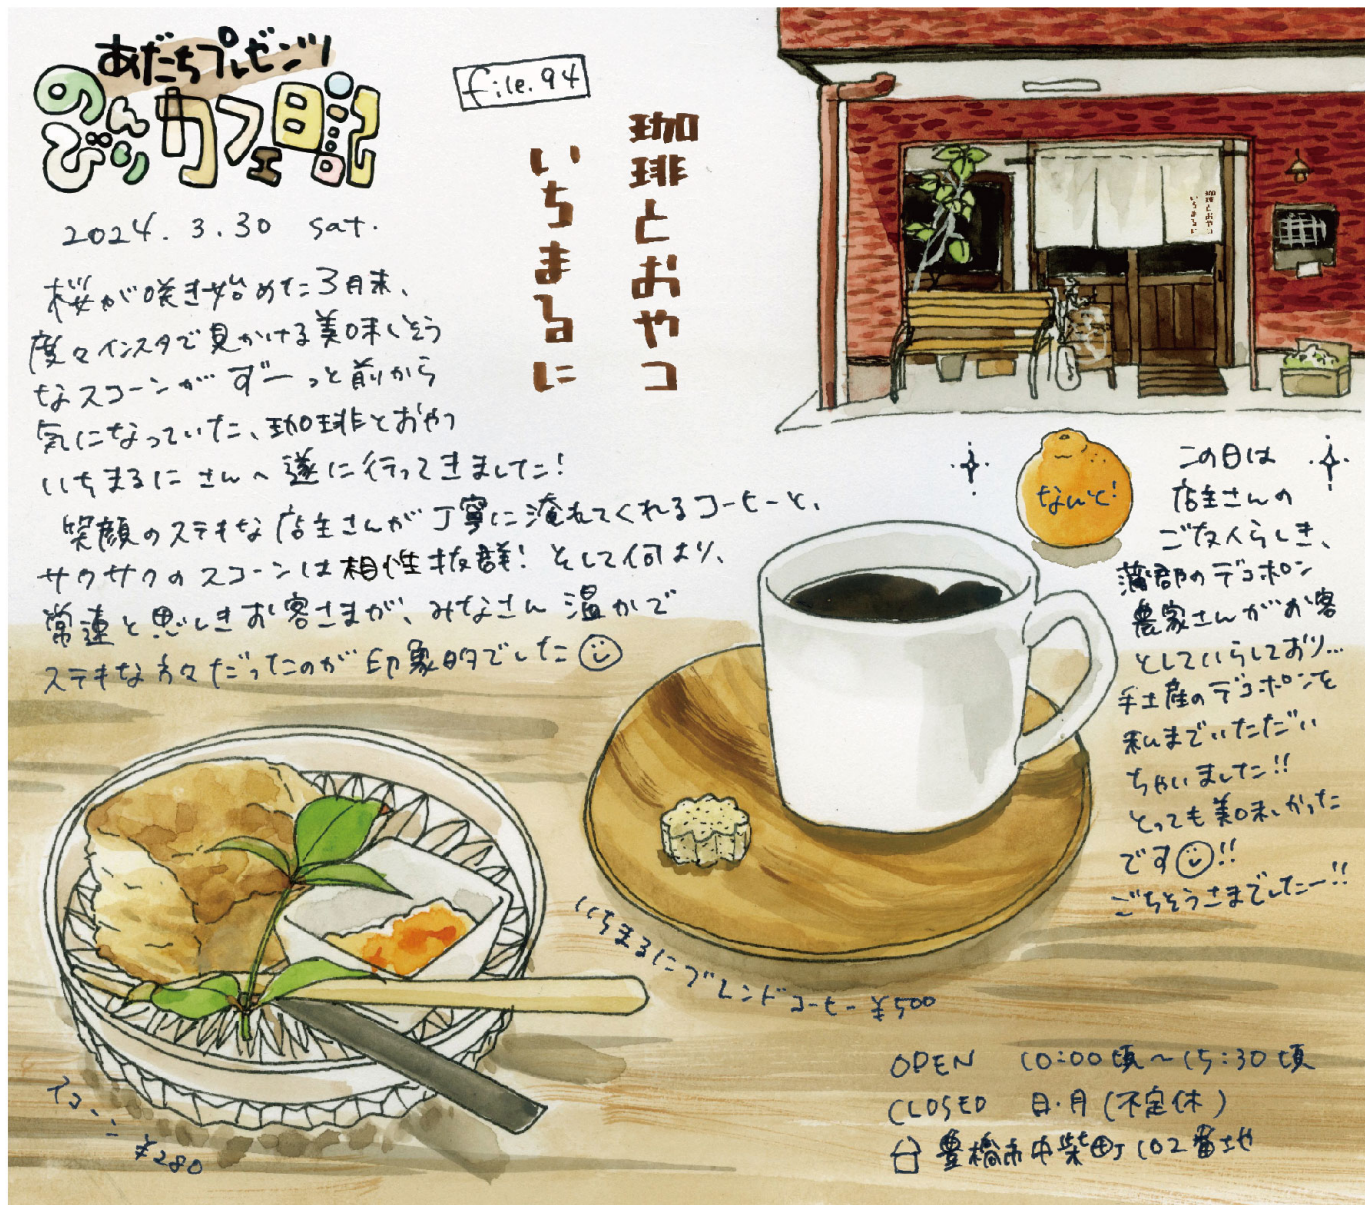 あだちプレゼンツ
のんびりカフェ日記
file.94
珈琲とおやつ
いちまるに
2024.3.30 sat.
桜が咲き始めた3月末、
度々インスタで見かける美味しそう
なスコーンがずーっと前から
気になっていた、珈琲とおやつ
いちまるにさんへ遂に行ってきました!
笑顔のステキな店主さんが丁寧に淹れてくれるコーヒーと、
サクサクのスコーンは相性抜群! そして何より、
常連と思しきお客さまが、みなさん温かで
ステキな方々だったのが印象的でした
珈琲とおやつ
いちまるに
なんと!
この日は
店主さんの
ご友人らしき、
蒲郡のデコポン
農家さんがお客
としていらしており...
手土産のデコポンを
私までいただい
ちゃいました!!
とっても美味しかった
です!!
ごちそうさまでしたー!!
いちまるにブレンドコーヒー ¥500
スコーン ¥280
OPEN 10:00頃〜15:30頃
CLOSED 日・月(不定休)
豊橋市中柴町102番地